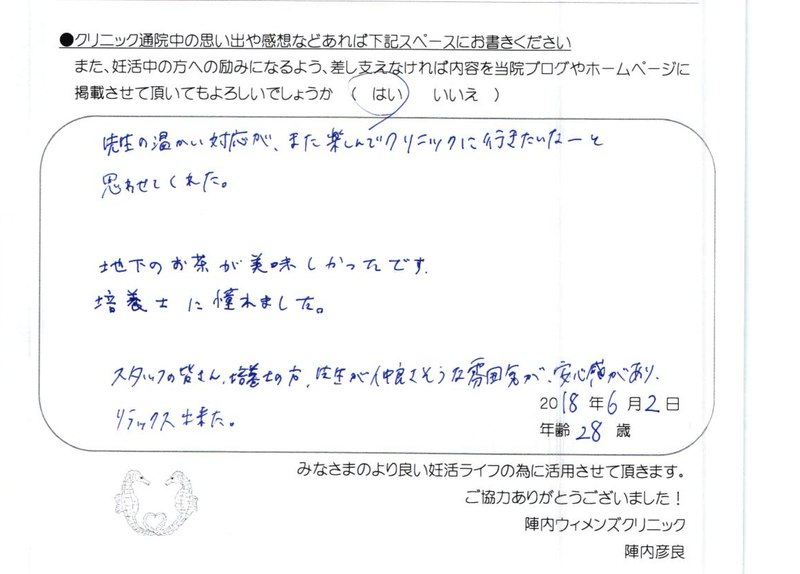 ●クリニック通院中の思い出や感想などあれば下記スペースにお書きください
また、妊活中の方への励みになるよう、差し支えなければ内容を当院ブログやホームページに
掲載させて頂いてもよろしいでしょうか （ はい　　いいえ ）
先生の温かい対応が、また楽しんでクリニックに行きたいなーと
思わせてくれた。
地下のお茶が美味しかったです。
培養士に憧れました。
スタッフの皆さん、培養士の方、先生が仲良さそうな雰囲気が、安心感があり、
リラックス出来た。
2018年6月2日
年齢 28 歳
みなさまのより良い妊活ライフの為に活用させて頂きます。
ご協力ありがとうございました！
陣内ウィメンズクリニック
陣内彦良